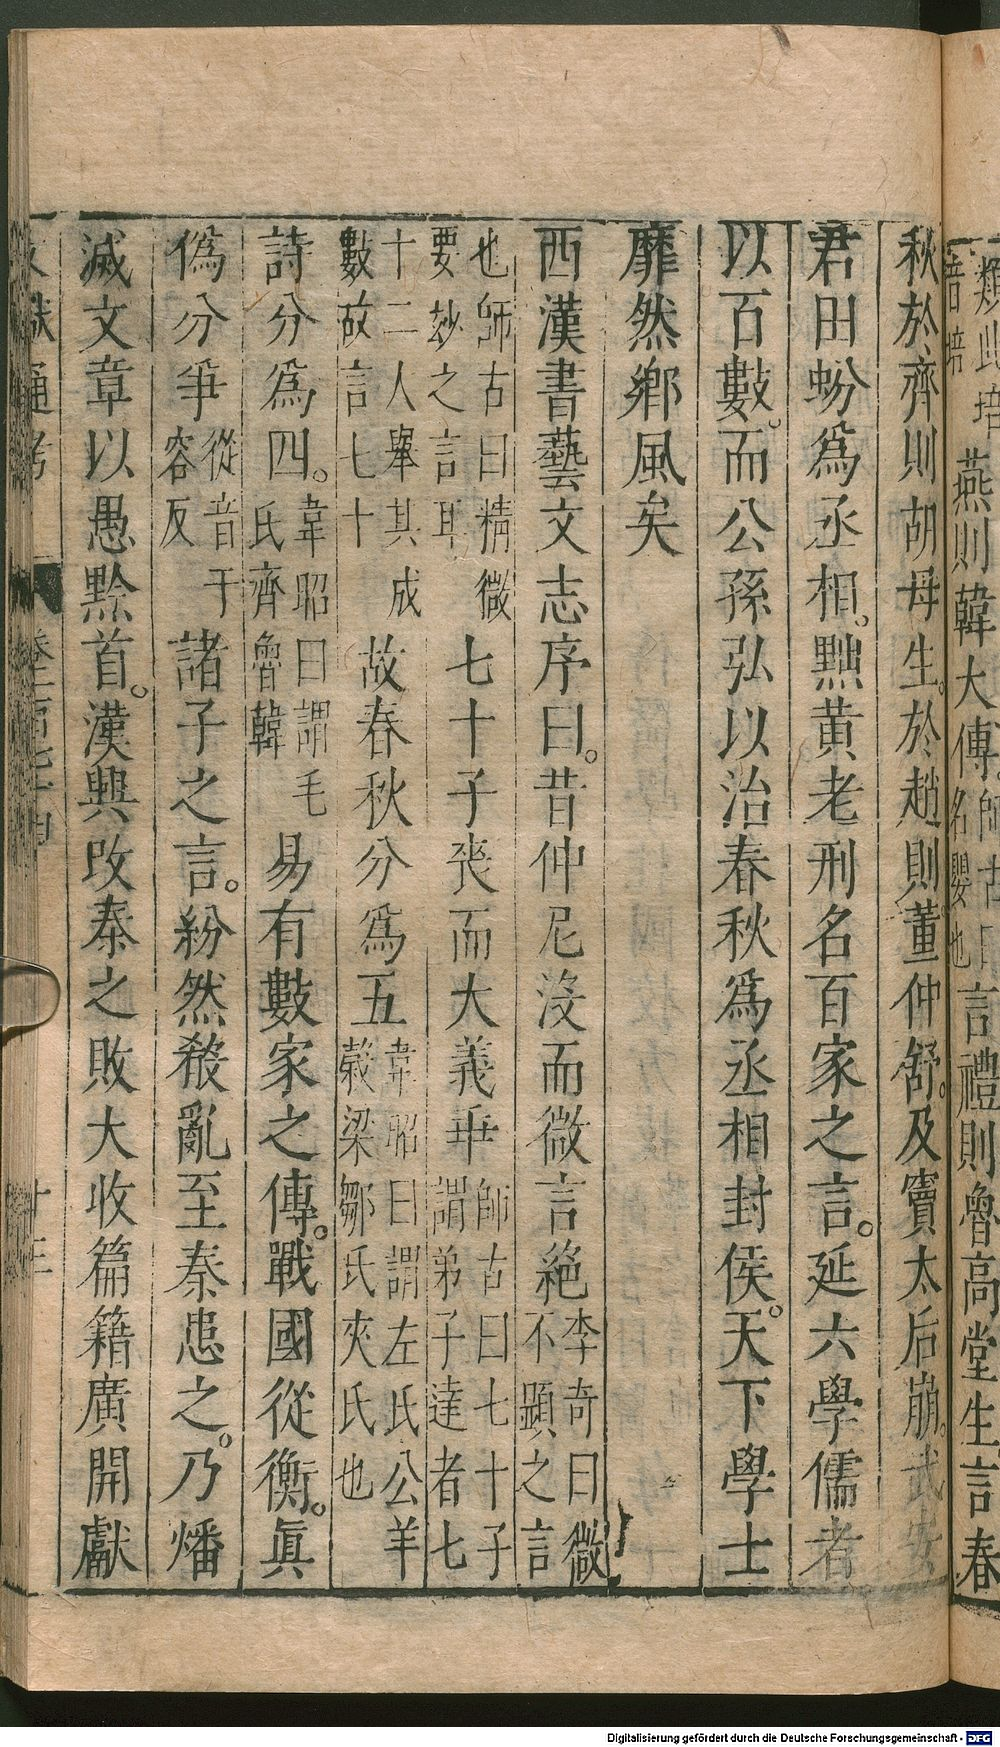 類此培
音培
燕則韓大傳。師古曰
名嬰也
言禮則魯高堂生言春
秋於齊則胡母生。於趙則董仲舒。及竇太后崩。武安
君田蚡爲丞相。黜黃老刑名百家之言。延六學儒者
以百數。而公孫弘以治春秋爲丞相封侯。天下學士
靡然鄉風矣
西漢書藝文志序曰。昔仲尼沒而微言絕李奇曰微
不顯之言
也師古曰精微
要妙之言耳
七十子喪而大義乖師古曰七十子
謂弟子達者七
十二人舉其成
數故言七十
故春秋分爲五韋昭曰謂左氏公羊
穀梁鄒氏夾氏也
詩分爲四。韋昭曰謂毛
氏齊魯韓
易有數家之傳。戰國從衡。眞
僞分爭從音于
容反
諸子之言。紛然殽亂至秦患之。乃燔
滅文章以愚黔首。漢興改秦之敗大收篇籍廣開獻
文獻通考
卷一百七十四
十三
Digitalisierung gefördert durch die Deutsche Forschungsgemeinschaft - DFG